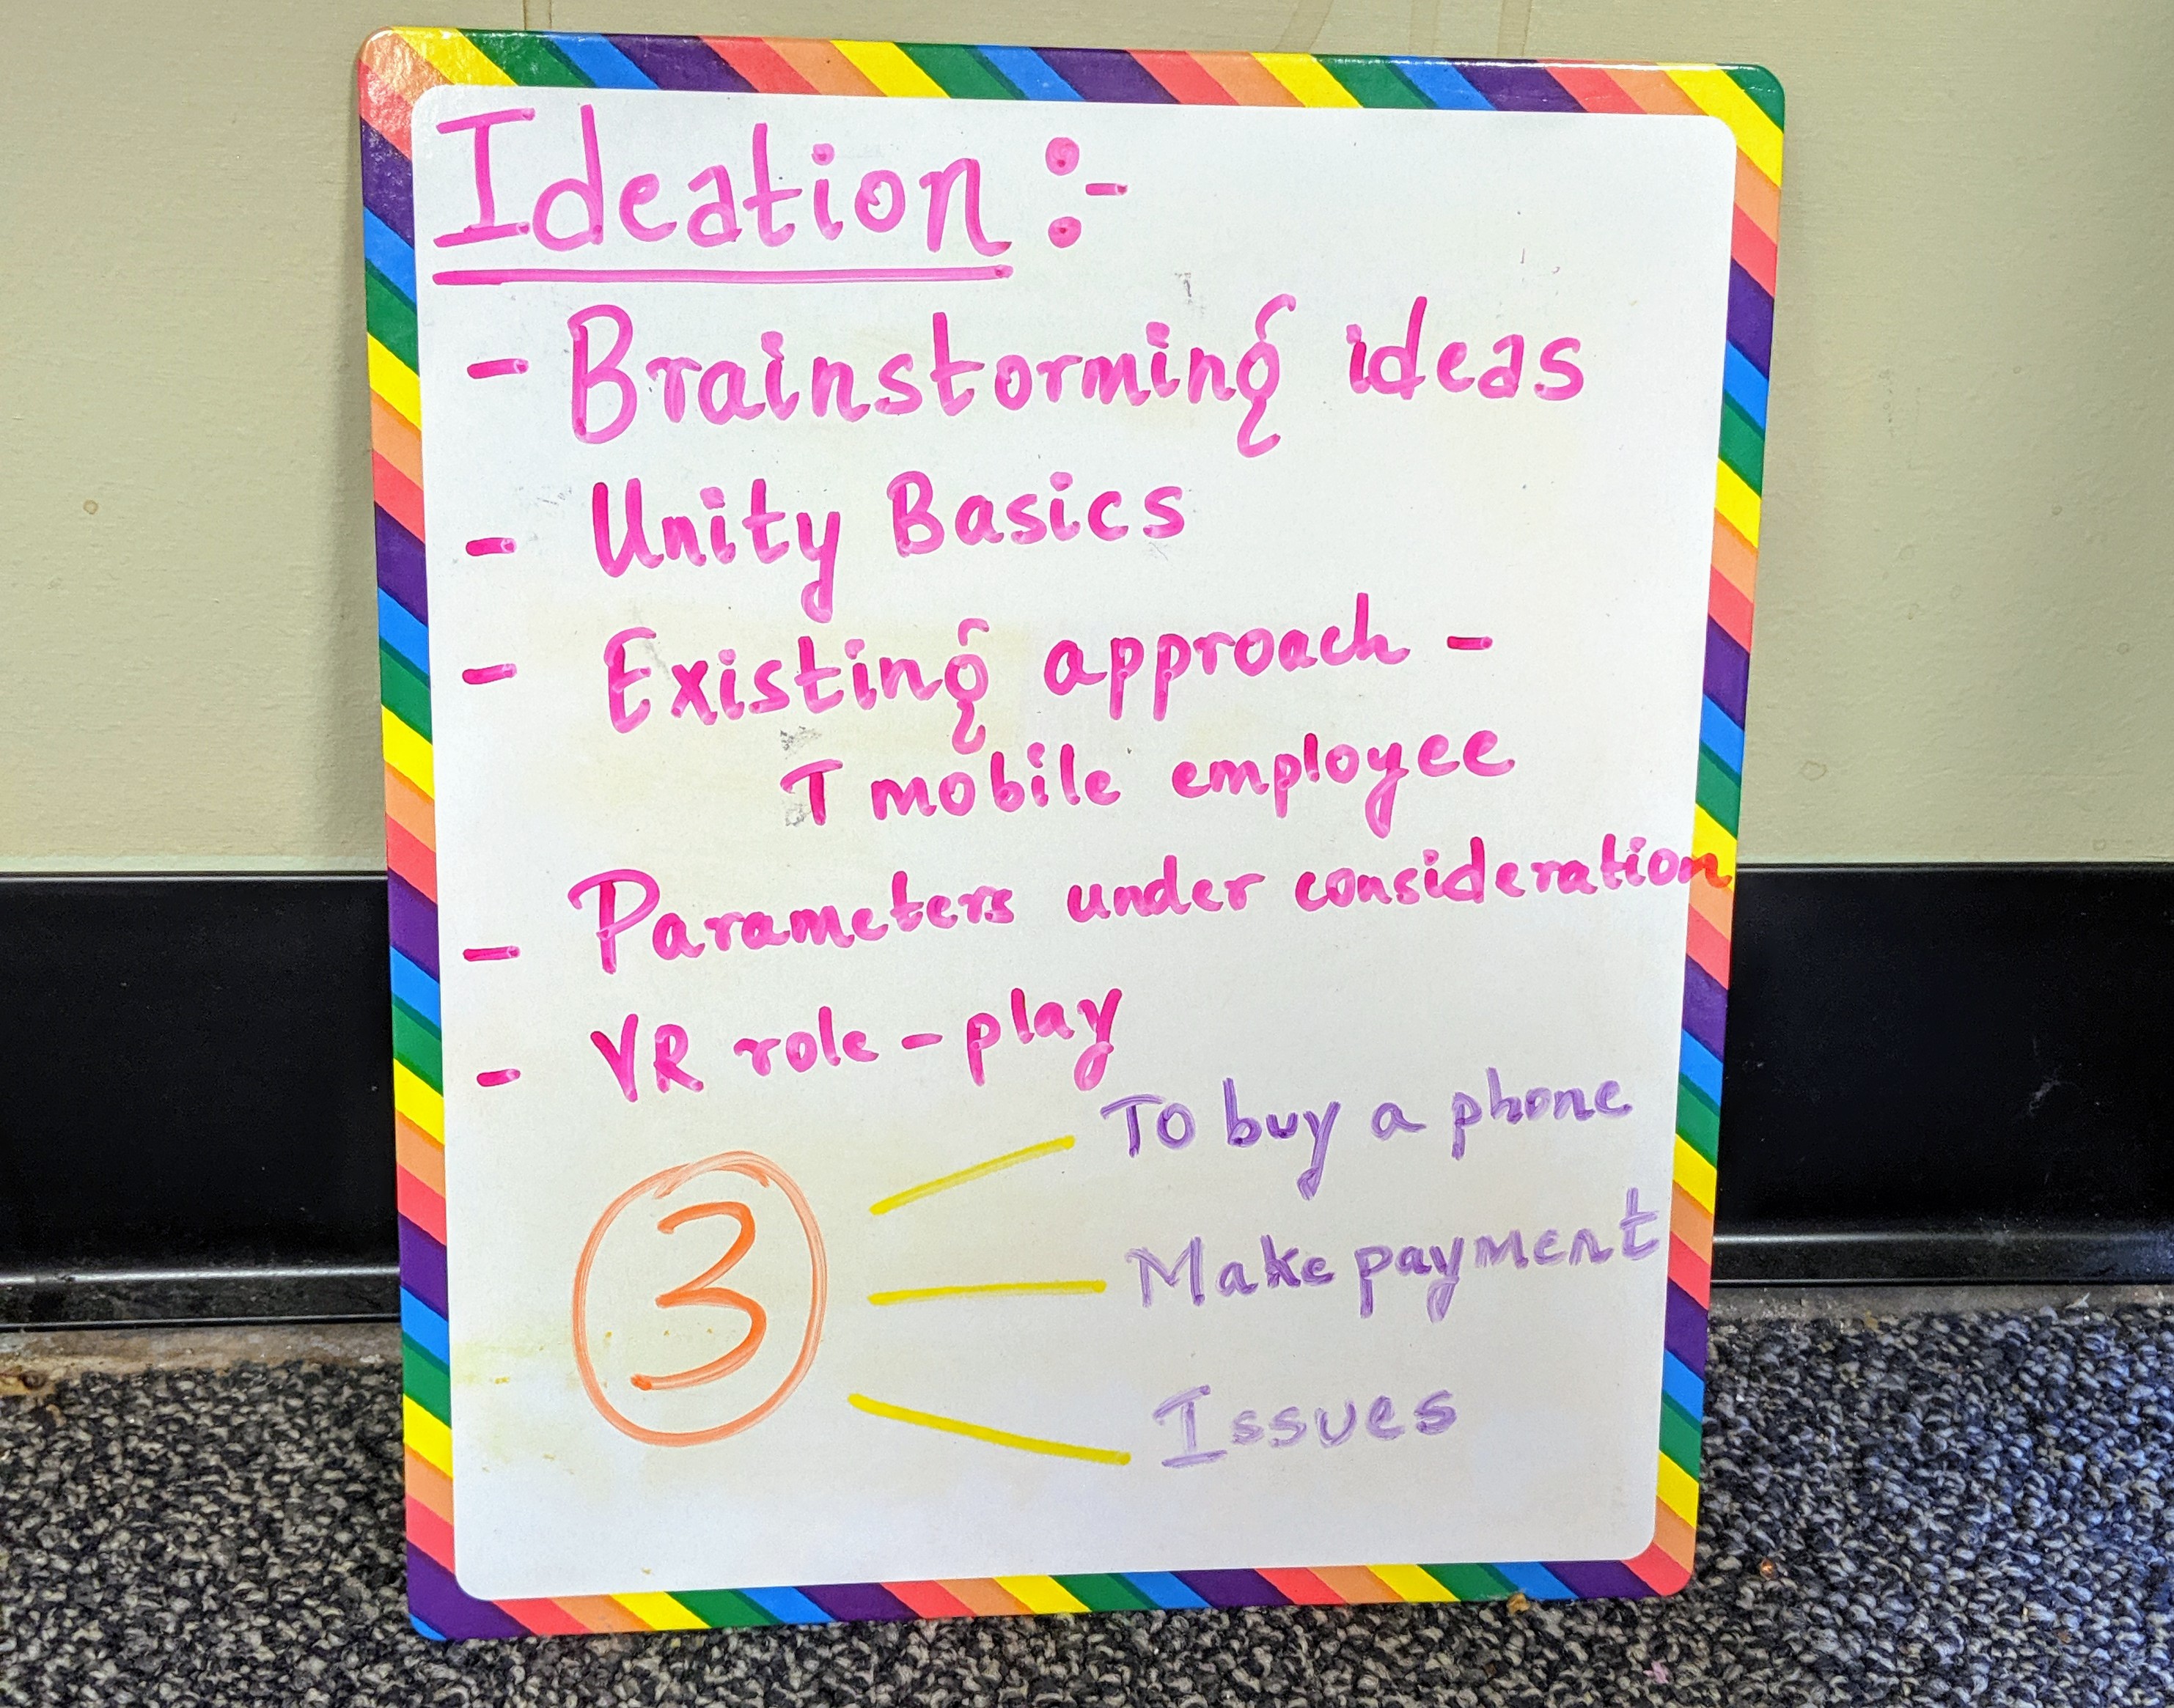 Ideation :-
- Brainstorming ideas
- Unity Basics
- Existing approach -
T mobile employee
- Parameters under consideration
- VR role-play
3
To buy a phone
Make payment
Issues